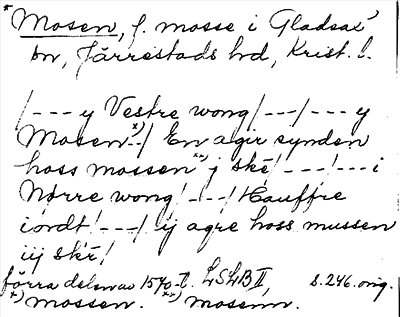 * Mosen, f. mosse i Gladsax
sn, Järrestads hd, Krist. l.
/---y Vestre wong/---/---y
Mosen x) --/ En agir synden
hoss mossen xx) j skê/---/---i
Nørre wong/---/ Hauffre
iordt/---/ ij agre hoss mussen
iij skê/
förra delen av 1570-t. LSLB II, s. 246. orig.
x) mossen. xx) mosenn.